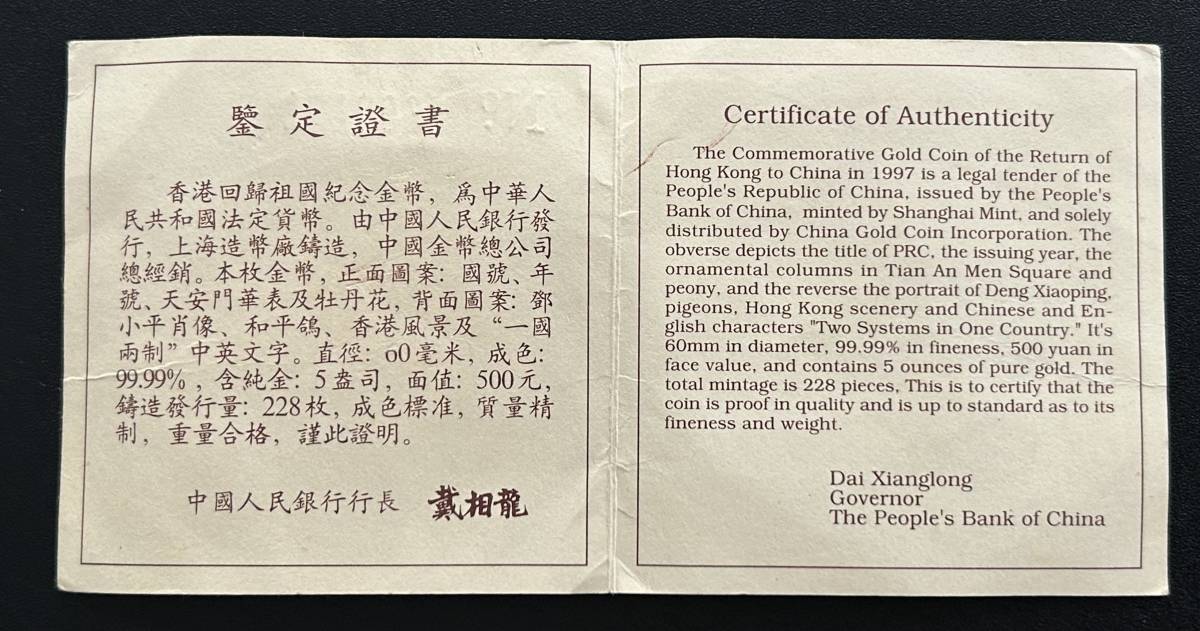 鑒定證書
香港回歸祖國紀念金幣，爲中華人
民共和國法定貨幣。由中國人民銀行發
行，上海造幣廠鑄造，中國金幣總公司
總經銷。本枚金幣，正面圖案：國號、年
號、天安門華表及牡丹花，背面圖案：鄧
小平肖像、和平鴿、香港風景及“一國
兩制”中英文字。直徑：o0毫米，成色：
99.99%，含純金：5盎司，面值：500元，
鑄造發行量：228枚，成色標准，質量精
制，重量合格，謹此證明。
中國人民銀行行長 戴相龍
Certificate of Authenticity
The Commemorative Gold Coin of the Return of
Hong Kong to China in 1997 is a legal tender of the
People's Republic of China, issued by the People's
Bank of China, minted by Shanghai Mint, and solely
distributed by China Gold Coin Incorporation. The
obverse depicts the title of PRC, the issuing year, the
ornamental columns in Tian An Men Square and
peony, and the reverse the portrait of Deng Xiaoping,
pigeons, Hong Kong scenery and Chinese and En-
glish characters "Two Systems in One Country." It's
60mm in diameter, 99.99% in fineness, 500 yuan in
face value, and contains 5 ounces of pure gold. The
total mintage is 228 pieces, This is to certify that the
coin is proof in quality and is up to standard as to its
fineness and weight.
Dai Xianglong
Governor
The People's Bank of China